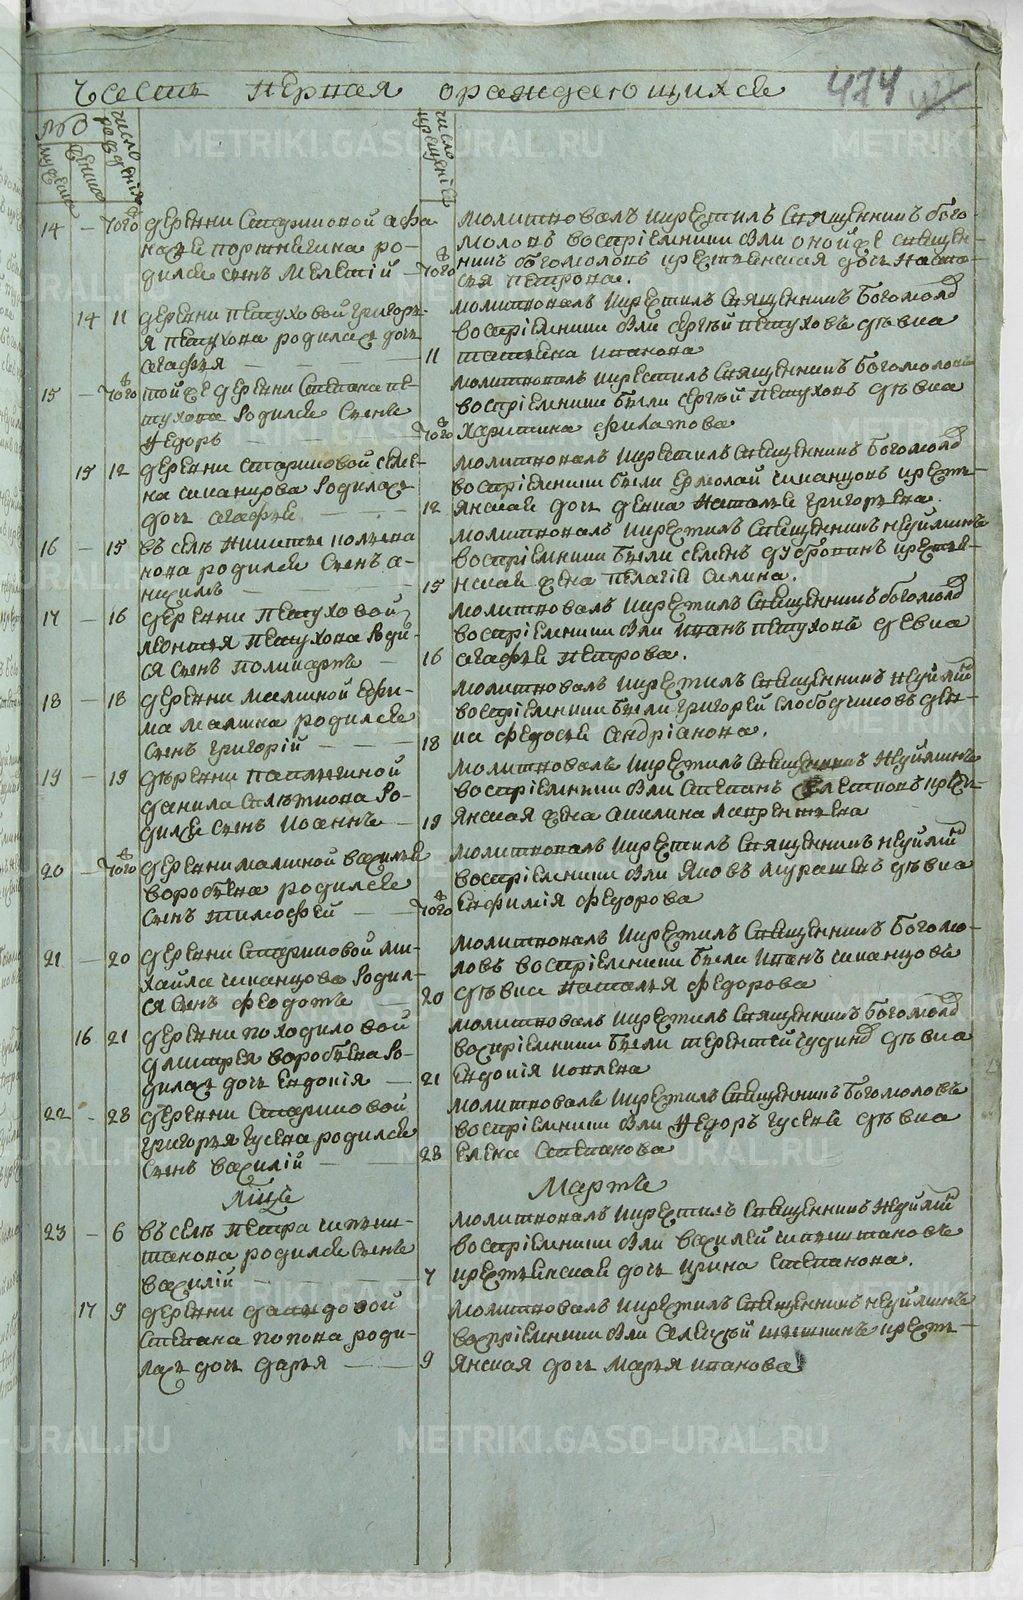 Часть первая о раждающихся 474
мужеска
женска
число рождения
число крещения
14 — того деревни Стариковой Афа
насья Портнягина ро-
дился сынъ Мелетій — того
молитвовалъ и крестилъ священникъ Бого-
моловъ воспріемники были оной же священ-
никъ Богомоловъ и крестьянская дочь Наста-
сья Петрова.
14 11 деревни Петуховой Григорь-
я Петухова родилась дочь
Агафья — 11
молитвовалъ и крестилъ священникъ Богомолов
воспріемники были Сергѣй Петуховъ дѣвка
Татьяна Иванова
15 — того той же деревни Степана Пе-
тухова родился сынъ
Федоръ — того
молитвовалъ и крестилъ священникъ Богомоловъ
воспріемники были Сергѣй Петуховъ дѣвка
Харитина Филатова
15 12 деревни Стариковой Семе-
на Сиканцова родилась
дочь Агафья — 12
молитвовалъ и крестилъ священникъ Богомолов
воспріемники были Ермолай Сиканцовъ крестья-
янская дочь девка Наталья Григорьева.
16 — 15 въ селѣ Никиты
родился сынъ А-
— 15
молитвовалъ и крестилъ священникъ Неуйминъ
воспріемники были Семенъ Дубровинъ крестья-
нская жена Пелагія Силина.
17 — 16 деревни Петуховой
Леонтья Петухова роди-
ся сынъ Поликарпъ — 16
молитвовалъ и крестилъ священникъ Богомолов
воспріемники были Иванъ Петуховъ девка
Агафья Петрова.
18 — 18 деревни Малкиной Ефи-
ма Малкина родился
сынъ Григорій — 18
молитвовалъ и крестилъ священникъ Неуймин
воспріемники были Григорей Слободчиковъ дев-
ка Федосья Андріанова.
19 — 19 деревни
Данила родился сынъ Иоаннъ — 19
молитвовалъ и крестилъ священникъ Неуйминъ
воспріемники были Степанъ крестья-
янская жена Акилина Лаврентьева
20 — того деревни Малкиной Василья
Воробьева родился
сынъ Тимофей — того
молитвовалъ и крестилъ священникъ Неуймин
воспріемники были Яковъ Мурашевъ дѣвка
Евфимія Федорова
21 — 20 деревни Стариковой Ми-
хайла Сиканцова родил-
ся сынъ Феодотъ — 20
молитвовалъ и крестилъ священникъ Богомо-
ловъ воспріемники были Иванъ Сиканцовъ
дѣвка Наталья Федорова
16 21 деревни Походиловой
Дмитрея Воробьева ро-
дилась дочь Евдокія — 21
молитвовалъ и крестилъ священникъ Богомолов
воспріемники были Терентей дѣвка
Евдокія
22 — 28 деревни Стариковой
Григорья Гусева родился
сынъ Василій — 28
молитвовалъ и крестилъ священникъ Богомоловъ
воспріемники были Федоръ Гусевъ дѣвка
Елена Степанова
Мцъ Мартъ
23 — 6 въ селѣ Петра
родился сынъ
Василій — 7
молитвовалъ и крестилъ священникъ Неуймин
воспріемники были Василей
крестьянская дочь Ирина Степанова.
17 9 деревни Давыдовой
Степана Попова роди-
лась дочь Дарья — 9
молитвовалъ и крестилъ священникъ Неуйминъ
воспріемники были Алексѣй крестья-
янская дочь Марья Иванова
METRIKI.GASO-URAL.RU